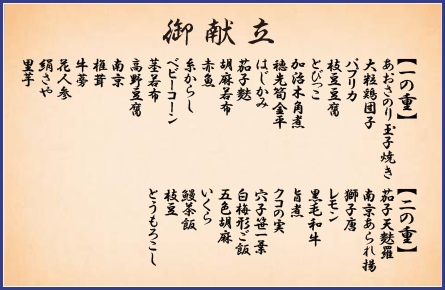 御献立
【一の重】
あおさのり玉子焼き
大粒鶏団子
パプリカ
枝豆豆腐
とびっこ
加治木角煮
穂先筍金平
はじかみ
茄子麩
胡麻若布
赤魚
糸からし
ベビーコーン
茎若布
高野豆腐
南京
椎茸
牛蒡
花人参
絹さや
里芋
【二の重】
茄子天麩羅
南京あられ揚
獅子唐
レモン
黒毛和牛
旨煮
クコの実
穴子笹一葉
白梅形ご飯
五色胡麻
いくら
鰻茶飯
枝豆
とうもろこし